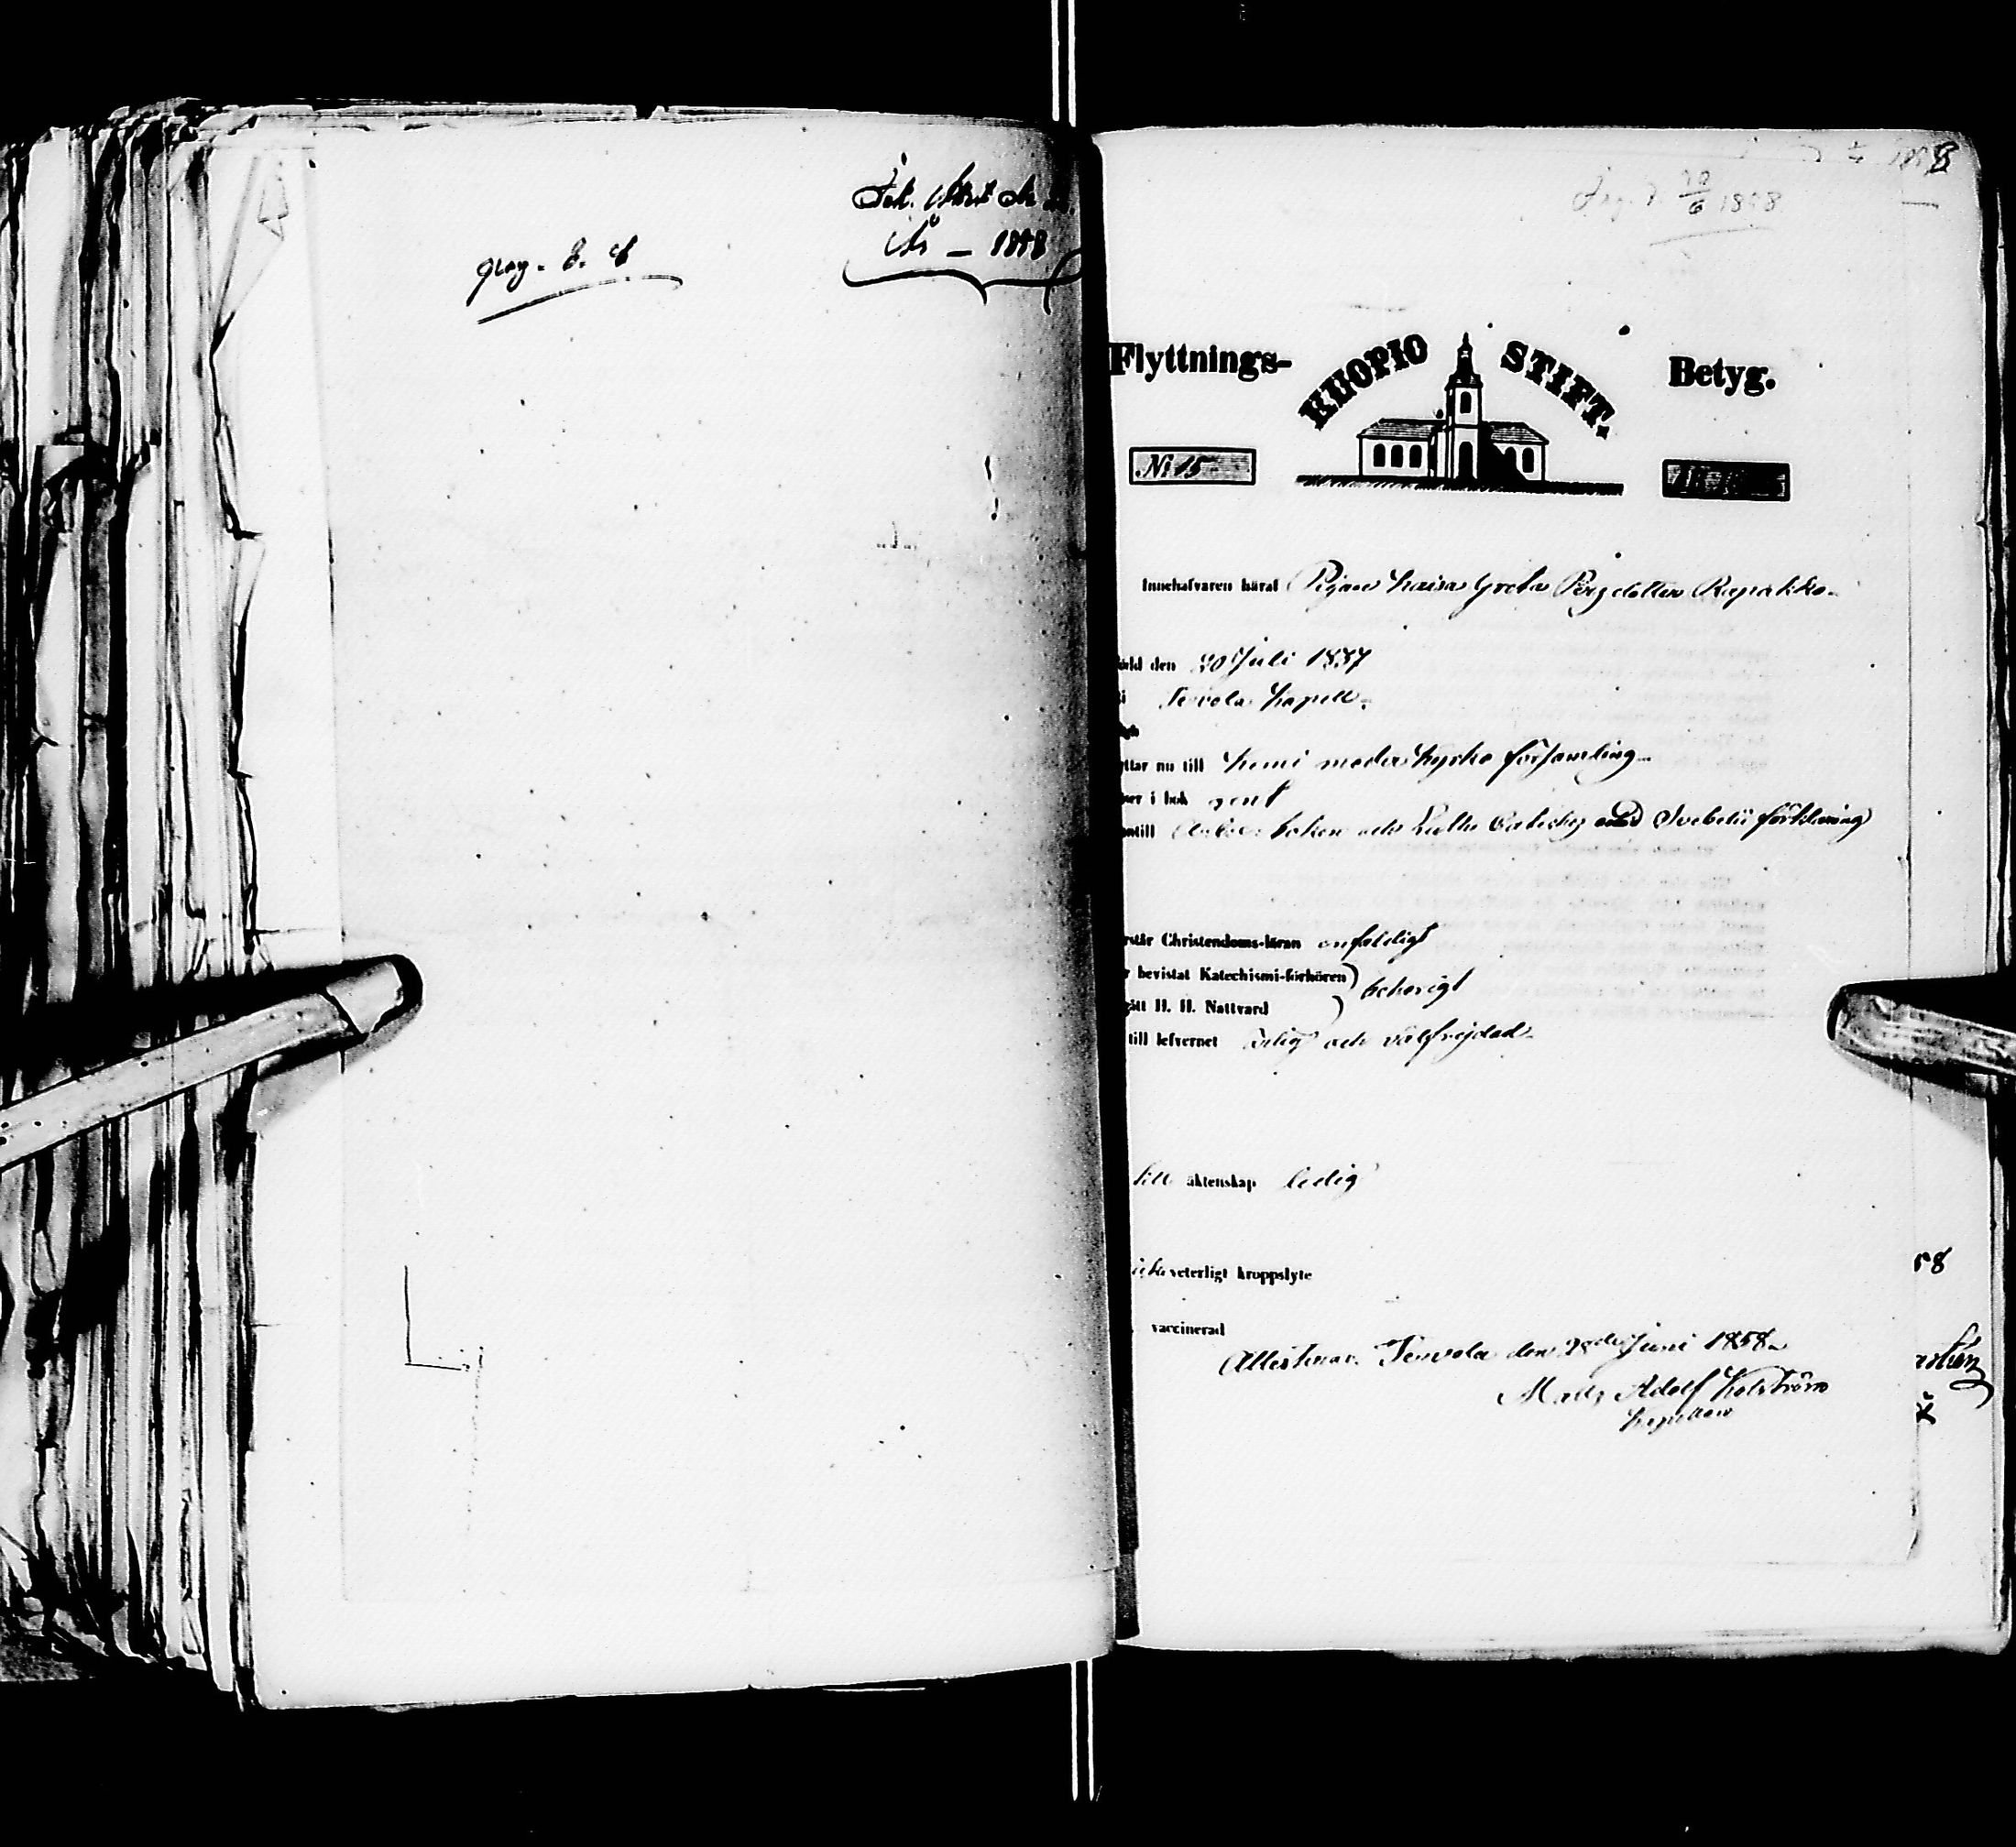 pag. 8. 4
År — 1858
30/6 1858
Flyttnings- KUOPIO STIFT. Betyg.
N: 15
Innehafvaren häraf Pigan Kaisa Greta Persdotter Rapakko
född den 20 Juli 1837
i Tervola Kapell
yttar nu till Kemi moderkyrko församling
ser i bok rent
antill Aabc-boken och Luth: Cateches med Svebelii förklaring
rstår Christendoms-läran enfaldigt
r bevistat Katechismi-förhören)
behörigt
gått H. H. Nattvard )
till lefvernet ärlig och välfrejdad
till äktenskap ledig
veterligt kroppslyte
vaccinerad
58
Attesterar. Tervola den 28de Juni 1858
Matts Adolf Holström
Kapellan